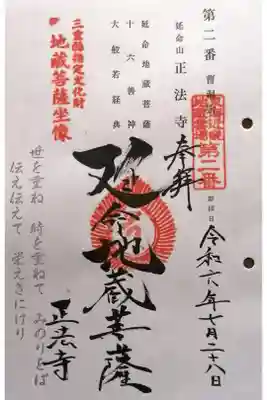 第二番
延命山 正法寺
奉拝
第二番
参拝日 令和六年七月二十八日
延命地蔵菩薩
十六善神
大般若経典
延命地蔵菩薩
三重県指定文化財
地蔵菩薩坐像
世を重ね 時を重ねて みのりをば
伝え伝えて 栄えきにけり
正法寺